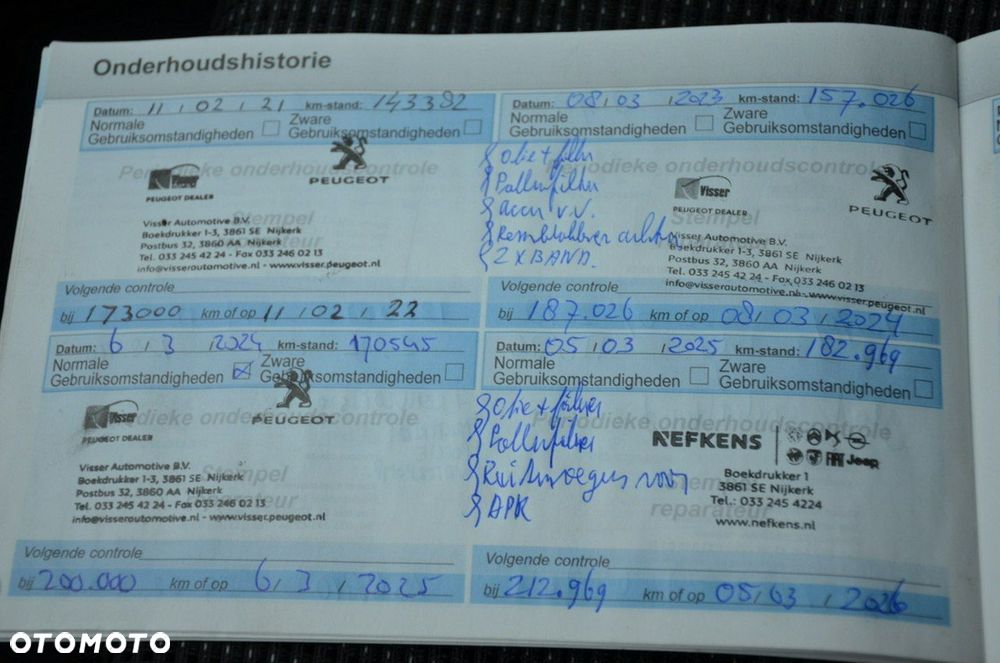 Onderhoudshistorie
Datum: 11 / 02 / 21 km-stand: 143382
Normale Gebruiksomstandigheden
Zware Gebruiksomstandigheden
Periodieke onderhoudscontrole
PEUGEOT
Visser
PEUGEOT DEALER
Stempel
reparateur
Visser Automotive B.V.
Boekdrukker 1-3, 3861 SE Nijkerk
Postbus 32, 3860 AA Nijkerk
Tel. 033 245 42 24 - Fax 033 246 02 13
info@visserautomotive.nl - www.visser.peugeot.nl
Volgende controle
bij 173000 km of op 11 / 02 / 22
Datum: 08 / 03 / 2023 km-stand: 157.026
Normale Gebruiksomstandigheden
Zware Gebruiksomstandigheden
Periodieke onderhoudscontrole
Olie + filter
Pollenfilter
accu v.v.
Remblokken achter
2 x BAND.
Visser
PEUGEOT DEALER
PEUGEOT
Stempel
Visser Automotive B.V.
Boekdrukker 1-3, 3861 SE Nijkerk
Postbus 32, 3860 AA Nijkerk
Tel. 033 245 42 24 - Fax 033 246 02 13
info@visserautomotive.nl - www.visser.peugeot.nl
Volgende controle
bij 187.026 km of op 08 / 03 / 2024
Datum: 6 / 3 / 2024 km-stand: 170545
Normale Gebruiksomstandigheden
Zware Gebruiksomstandigheden
Periodieke onderhoudscontrole
Visser
PEUGEOT DEALER
PEUGEOT
Stempel
reparateur
Visser Automotive B.V.
Boekdrukker 1-3, 3861 SE Nijkerk
Postbus 32, 3860 AA Nijkerk
Tel. 033 245 42 24 - Fax 033 246 02 13
info@visserautomotive.nl - www.visser.peugeot.nl
Volgende controle
bij 200.000 km of op 6 / 3 / 2025
Datum: 05 / 03 / 2025 km-stand: 182.969
Normale Gebruiksomstandigheden
Zware Gebruiksomstandigheden
Periodieke onderhoudscontrole
Olie + filter
Pollenfilter
Ruitenwissers voor
APK
NEFKENS
FIAT Jeep
Stempel
reparateur
Boekdrukker 1
3861 SE Nijkerk
Tel.: 033 245 4224
www.nefkens.nl
Volgende controle
bij 212.969 km of op 05 / 03 / 2026
OTOMOTO